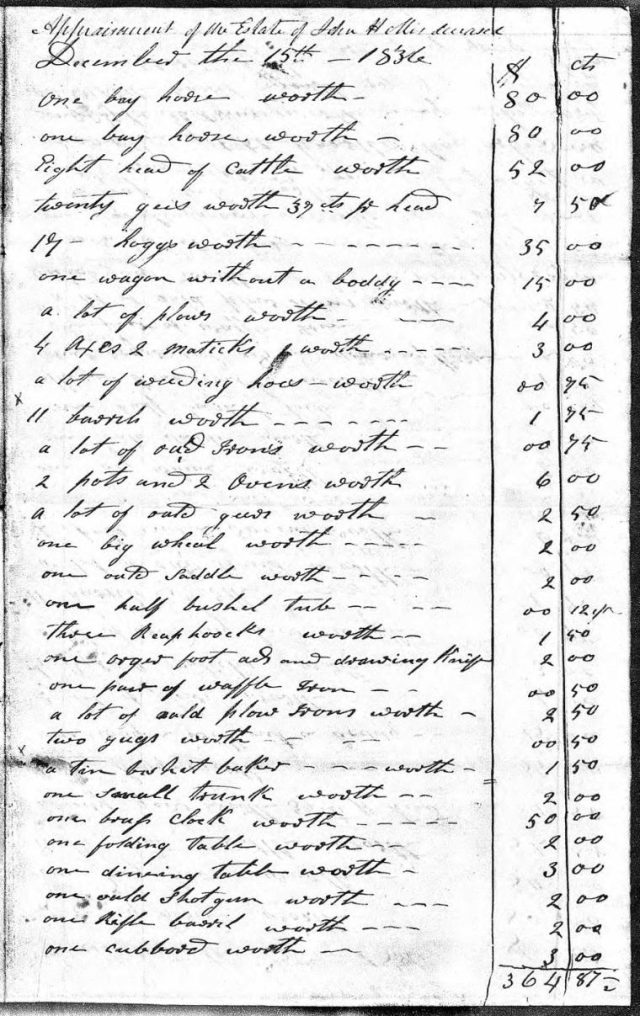 Appraisment of the Estate of John Hollis deceased
December the 15th – 1836 $ cts
one bay horse worth – 80 00
one bay horse worth – 80 00
Eight head of Cattle worth 52 00
twenty gees worth 37 cts pr head 7 50
17 – hoggs worth – – – – – – – – 35 00
one wagon without a boddy – – – – 15 00
a lot of plows worth – – – 4 00
4 Axes 2 maticks worth – – – – – 3 00
a lot of weeding hoes – worth 00 75
x
11 barrils worth – – – – – – – 1 75
a lot of ould Irons worth – – 00 75
2 pots and 2 Ovens worth 6 00
a lot of ould gees worth – 2 50
one big wheal worth – – – – – 2 00
one ould Saddle worth – – – – 2 00
one half bushel tub – – – – 00 12
three Reaphoocks worth – – 1 50
one orger foot ads and drawing Knife 2 00
one pair of waffle Iron – – 00 50
a lot of auld plow Irons worth – 2 50
two gugs worth – – – – 00 50
x
a tin bushit baker – – – – worth – 1 50
one small trunk worth – – 2 00
one brass Clock worth – – – – – 50 00
one folding table worth – – 2 00
one dineing table worth – 3 00
one ould Shotgun worth – – – 2 00
one Rifle barril worth – – – – 2 00
one cubboard worth – – 3 00
364 87